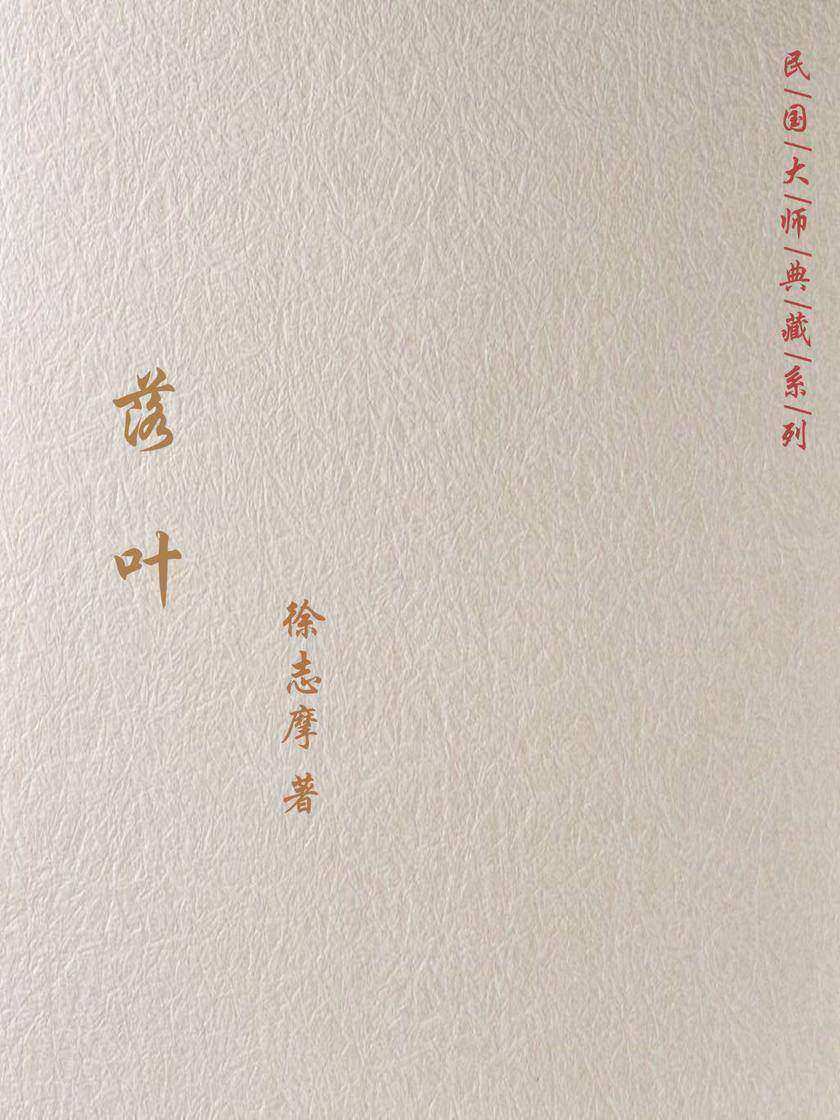 民|国|大|师|典|藏|系|列
落叶
徐志摩 著